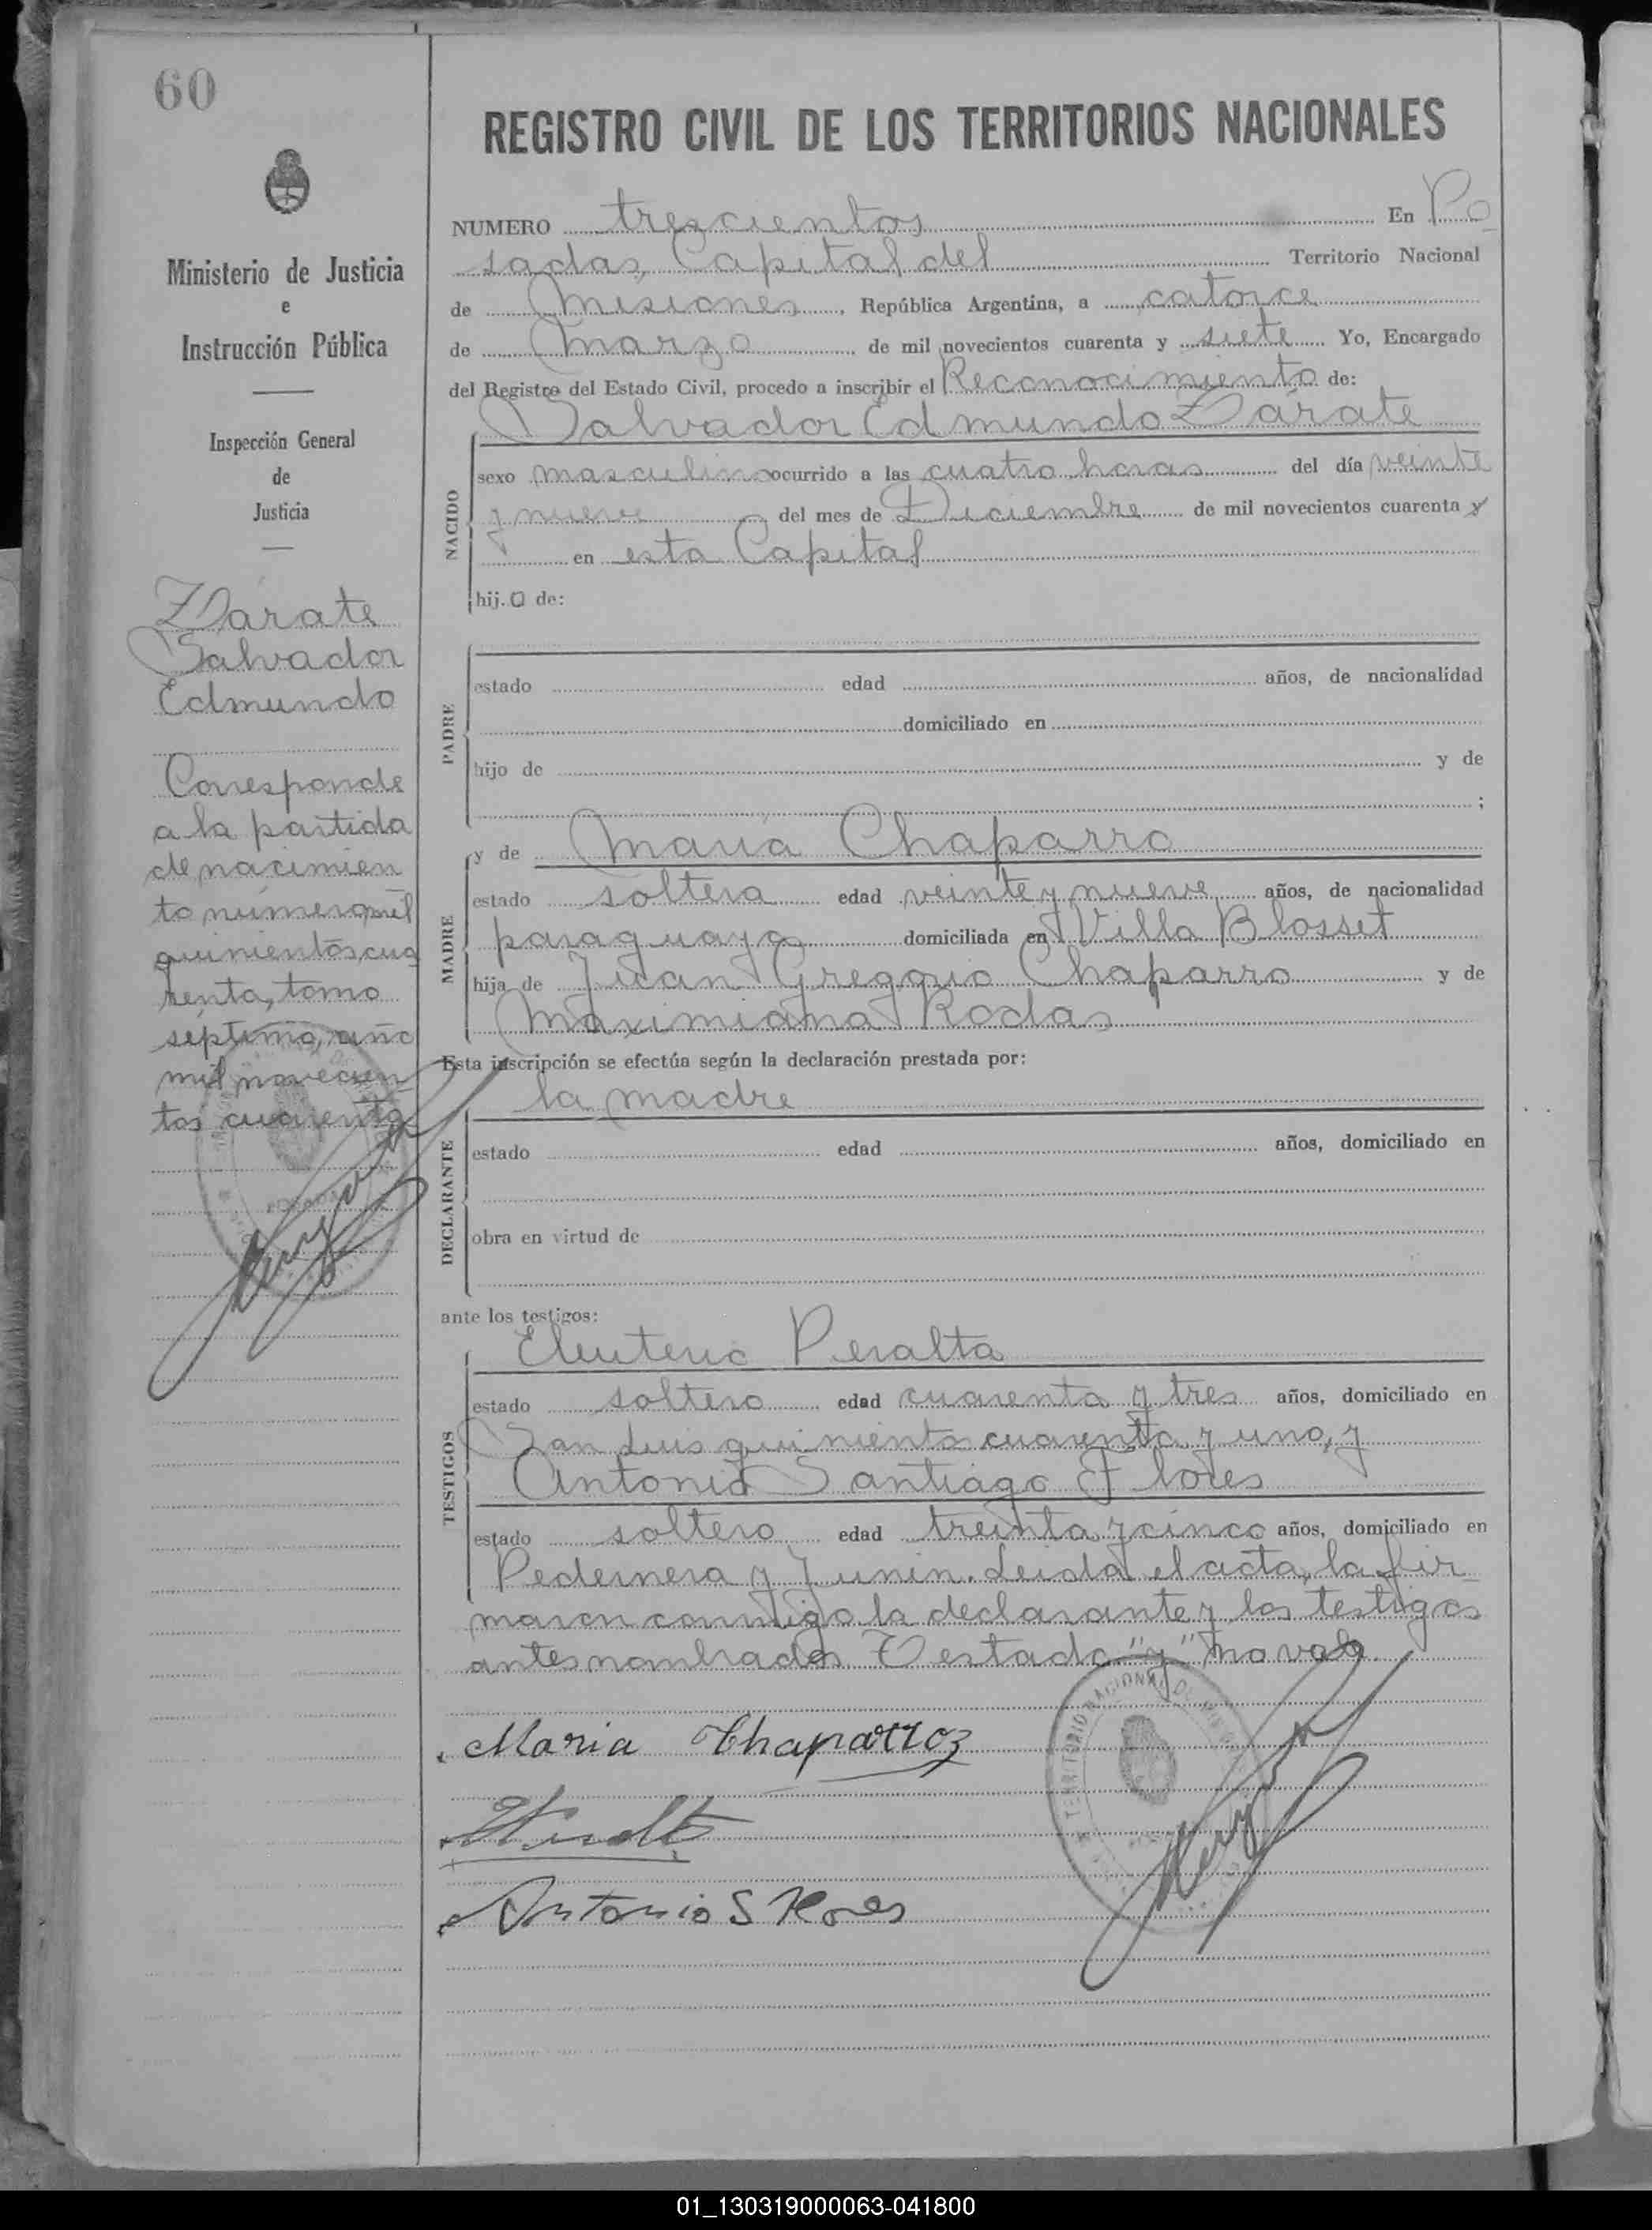 60
REGISTRO CIVIL DE LOS TERRITORIOS NACIONALES
NUMERO trescientos En Po
sadas, Capital del Territorio Nacional
de Misiones, República Argentina, a catorce
de Marzo de mil novecientos cuarenta y siete Yo, Encargado
del Registro del Estado Civil, procedo a inscribir el Reconocimiento de:
Salvador Edmundo Zárate
NACIDO
sexo masculino ocurrido a las cuatro horas del día veinte
y nueve del mes de Diciembre de mil novecientos cuarenta y
en esta Capital
hij.o de:
PADRE
estado edad años, de nacionalidad
domiciliado en
hijo de y de
;
MADRE
y de Maria Chaparro
estado soltera edad veinte y nueve años, de nacionalidad
paraguaya domiciliada en Villa Blosset
hija de Juan Gregorio Chaparro y de
Maximiana Rodas
Esta inscripción se efectúa según la declaración prestada por:
la madre
DECLARANTE
estado edad años, domiciliado en
obra en virtud de
ante los testigos:
TESTIGOS
Eleuterio Peralta
estado soltero edad cuarenta y tres años, domiciliado en
San Luis quinientos cuarenta y uno, y
Antonio Santiago Flores
estado soltero edad treinta y cinco años, domiciliado en
Pedernera y Junin. Leida el acta, la fir_
maron conmigo la declarante y los testigos
antes nombrados. Testado "y" no vale.
Maria Chaparroz
Antonio S Flores
TERRITORIO NACIONAL DE
Ministerio de Justicia
e
Instrucción Pública
Inspección General
de
Justicia
Zárate
Salvador
Edmundo
Corresponde
a la partida
de nacimien
to número mil
quinientos cua
renta, tomo
séptimo, año
mil novecien
tos cuarenta
01_130319000063-041800